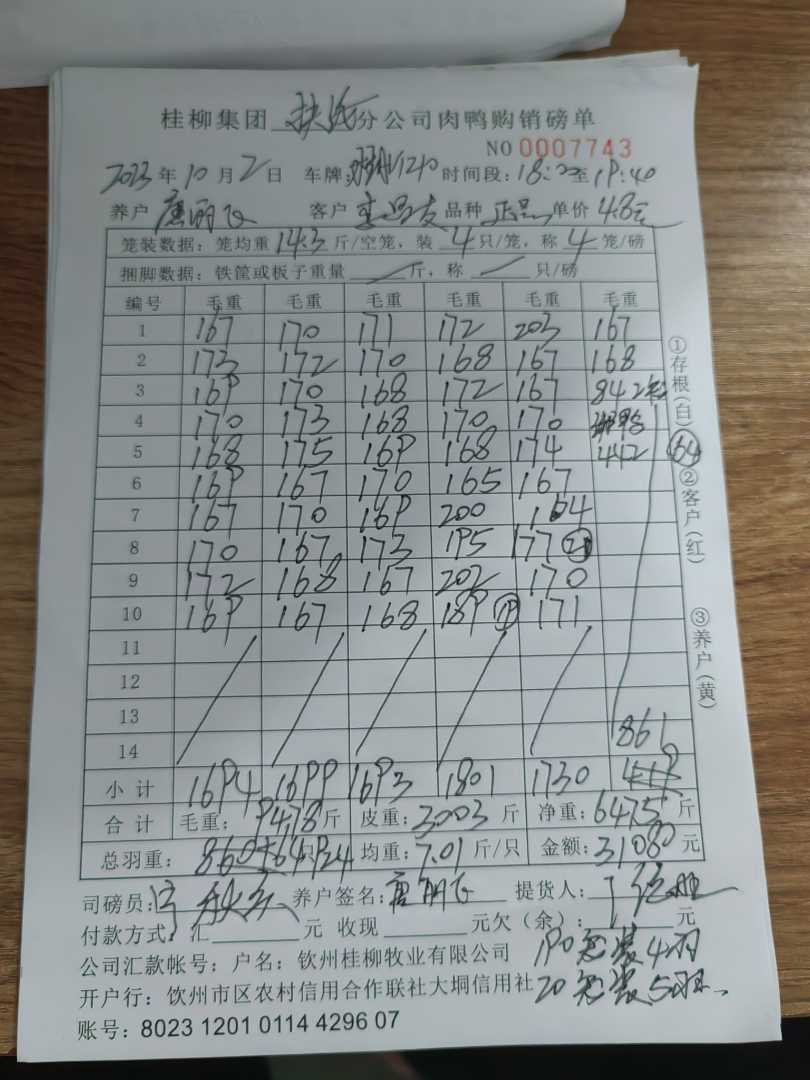 桂柳集团 扶绥 分公司肉鸭购销磅单
NO 0007743
2023 年 10 月 2 日 车牌: 1240 时间段: 18:20 至 19:40
养户 唐丽飞 客户 李昌友 品种 正品 单价 4.8元
笼装数据: 笼均重 14.3 斤/空笼, 装 4 只/笼, 称 4 笼/磅
捆脚数据: 铁筐或板子重量 / 斤, 称 / 只/磅
编号 毛重 毛重 毛重 毛重 毛重 毛重
1 167 170 171 172 203 167
2 173 172 170 168 167 168
3 169 170 168 172 167 84 2笼
4 170 173 168 170 170
5 168 175 169 168 174 442 64
6 169 167 170 165 167
7 167 170 169 200 164
8 170 167 173 195 177
9 172 168 167 202 170
10 169 167 168 189 171
11
12
13
14 861
小计 1694 1699 1693 1801 1730
合计 毛重: 9478 斤 皮重: 3003 斤 净重: 6475 斤
总羽重: 860+64 只 924 均重: 7.01 斤/只 金额: 31080 元
司磅员: 养户签名: 唐丽飞 提货人:
付款方式: 汇 元 收现 元欠(余): 元
公司汇款帐号: 户名: 钦州桂柳牧业有限公司 190笼装4羽
开户行: 钦州市区农村信用合作联社大垌信用社 20笼装5羽
账号: 8023 1201 0114 4296 07
①存根(白)
②客户(红)
③养户(黄)